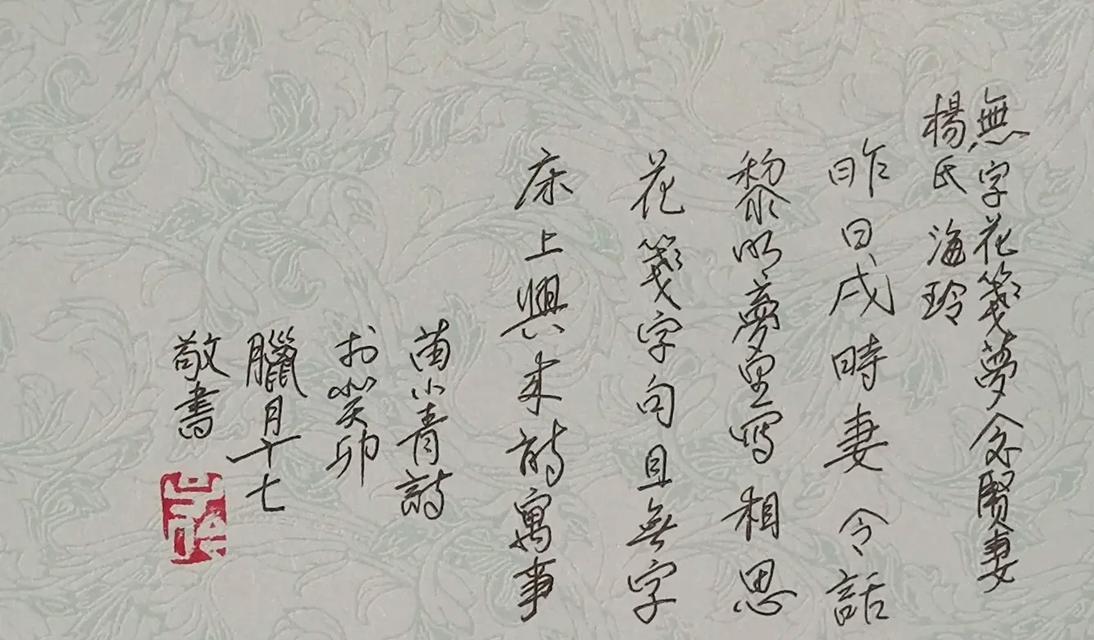 無字花箋夢念賢妻
楊氏海玲
昨日戌時妻令話
黎明夢里寫相思
花箋字句且無字
床上興来詩寓事
苗小青詩
於癸卯
臘月十七
敬書